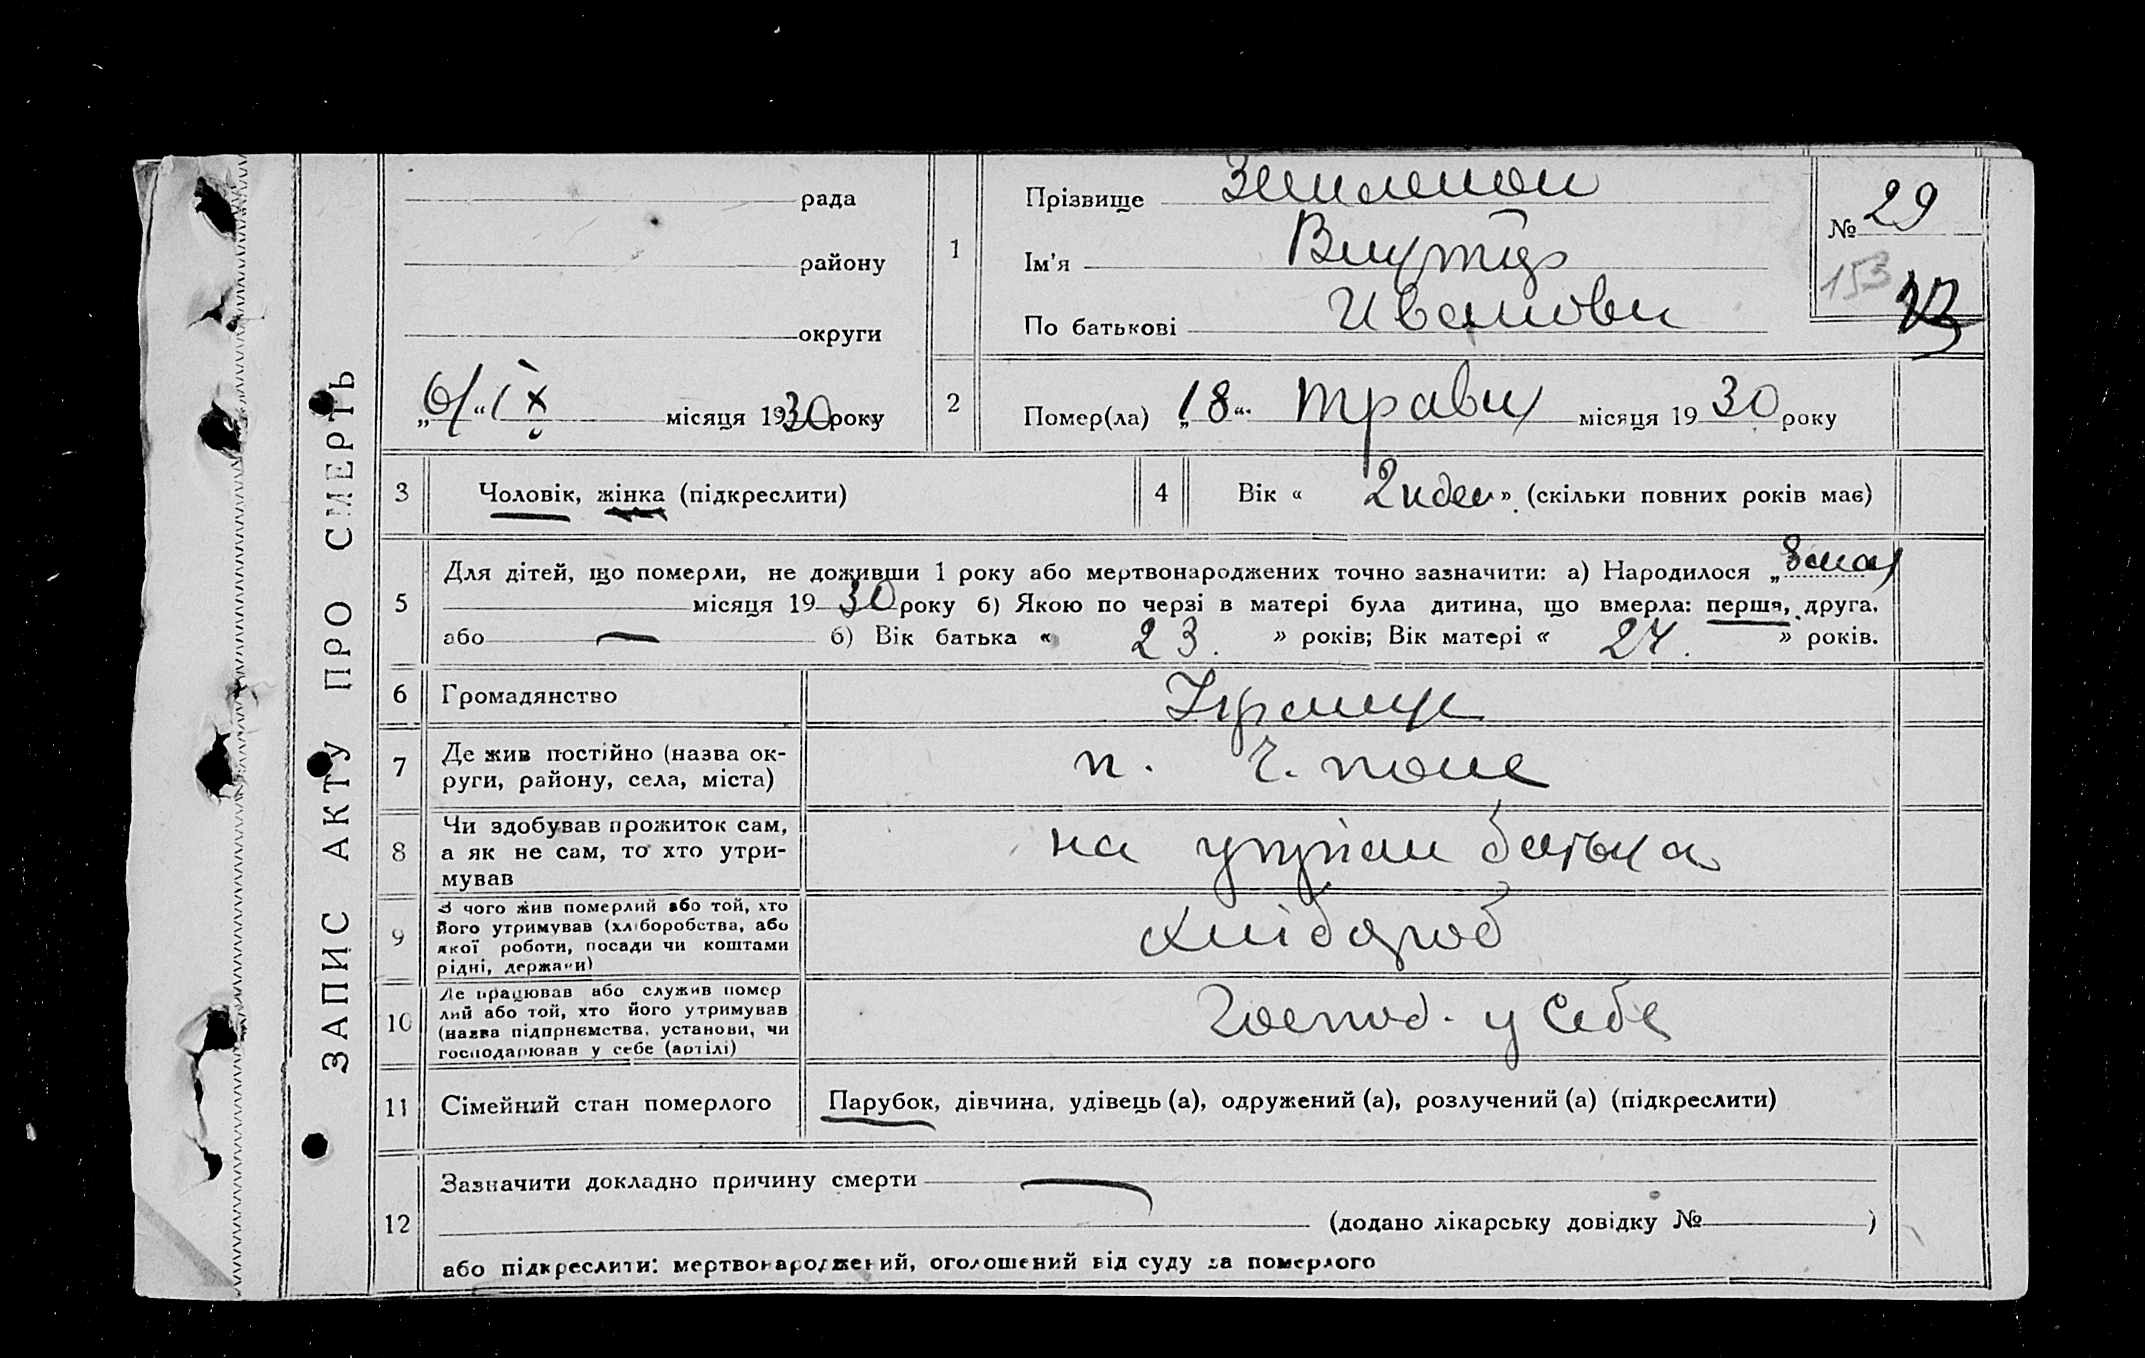 ЗАПИС АКТУ ПРО СМЕРТЬ
рада
району
округи
„6/“ IX місяця 1930 року
1
Прізвище
Ім'я
По батькові Иванови
№ 29
153
2
Помер(ла) „18“ травн місяця 1930 року
3
Чоловік, жінка (підкреслити)
4
Вік « 2 неделі » (скільки повних років має)
5
Для дітей, що померли, не доживши 1 року або мертвонароджених точно зазначити: а) Народилося „3 мая
місяця 1930 року б) Якою по черзі в матері була дитина, що вмерла: перша, друга,
або — б) Вік батька « 23. » років; Вік матері « 24. » років.
6
Громадянство
7
Де жив постійно (назва ок-
руги, району, села, міста)
п. Ч. поле
8
Чи здобував прожиток сам,
а як не сам, то хто утри-
мував
на утрим батька
9
З чого жив померлий або той, хто
його утримував (хліборобства, або
якої роботи, посади чи коштами
рідні, держави)
хлібороб
10
Де працював або служив помер
лий або той, хто його утримував
(назва підприємства, установи, чи
господарював у себе (артілі)
Господ. у себе
11
Сімейний стан померлого
Парубок, дівчина, удівець (а), одружений (а), розлучений (а) (підкреслити)
12
Зазначити докладно причину смерти —
(додано лікарську довідку № )
або підкреслити: мертвонароджений, оголошений від суду за померлого